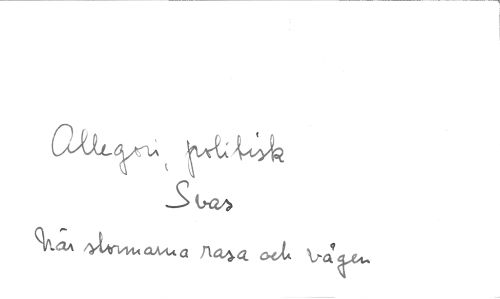 Allegori, politisk
Svas
När stormarna rasa och vågen